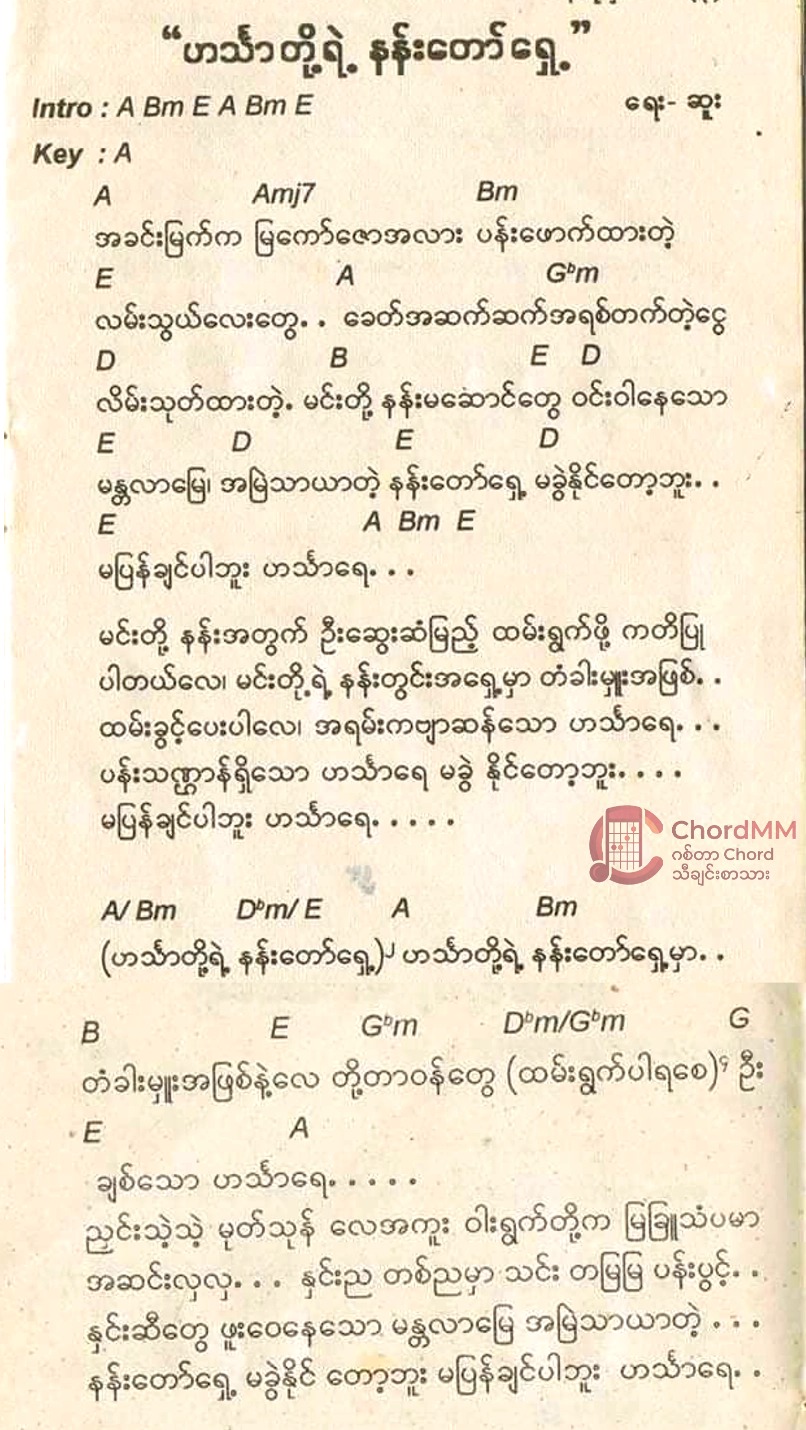 “ဟင်္သာတို့ရဲ့ နန်းတော်ရှေ့”
Intro : A Bm E A Bm E ရေး- ဆူး
Key : A
A Amj7 Bm
အခင်းမြက်က မြကော်ဇောအလား ပန်းဖောက်ထားတဲ့
E A Gᵇm
လမ်းသွယ်လေးတွေ. . ခေတ်အဆက်ဆက်အရစ်တက်တဲ့ငွေ
D B E D
လိမ်းသုတ်ထားတဲ့. မင်းတို့ နန်းမဆောင်တွေ ဝင်းဝါနေသော
E D E D
မန္တလာမြေ၊ အမြဲသာယာတဲ့ နန်းတော်ရှေ့ မခွဲနိုင်တော့ဘူး. .
E A Bm E
မပြန်ချင်ပါဘူး ဟင်္သာရေ. . .
မင်းတို့ နန်းအတွက် ဦးဆွေးဆံမြည့် ထမ်းရွက်ဖို့ ကတိပြု
ပါတယ်လေ၊ မင်းတို့ရဲ့ နန်းတွင်းအရှေ့မှာ တံခါးမှူးအဖြစ်. .
ထမ်းခွင့်ပေးပါလေ၊ အရမ်းကဗျာဆန်သော ဟင်္သာရေ. . .
ပန်းသဏ္ဌာန်ရှိသော ဟင်္သာရေ မခွဲ နိုင်တော့ဘူး. . . .
မပြန်ချင်ပါဘူး ဟင်္သာရေ. . . . .
ChordMM
ဂစ်တာ Chord
သီချင်းစာသား
A/ Bm Dᵇm/ E A Bm
(ဟင်္သာတို့ရဲ့ နန်းတော်ရှေ့)၂ ဟင်္သာတို့ရဲ့ နန်းတော်ရှေ့မှာ. .
B E Gᵇm Dᵇm/Gᵇm G
တံခါးမှူးအဖြစ်နဲ့လေ တို့တာဝန်တွေ (ထမ်းရွက်ပါရစေ)၄ ဦး
E A
ချစ်သော ဟင်္သာရေ. . . . .
ညှင်းသဲ့သဲ့ မုတ်သုန် လေအကူး ဝါးရွက်တို့က မြခြူသံပမာ
အဆင်းလှလှ. . . နှင်းည တစ်ညမှာ သင်း တမြမြ ပန်းပွင့်. .
နှင်းဆီတွေ ဖူးဝေနေသော မန္တလာမြေ အမြဲသာယာတဲ့ . . .
နန်းတော်ရှေ့ မခွဲနိုင် တော့ဘူး မပြန်ချင်ပါဘူး ဟင်္သာရေ. .